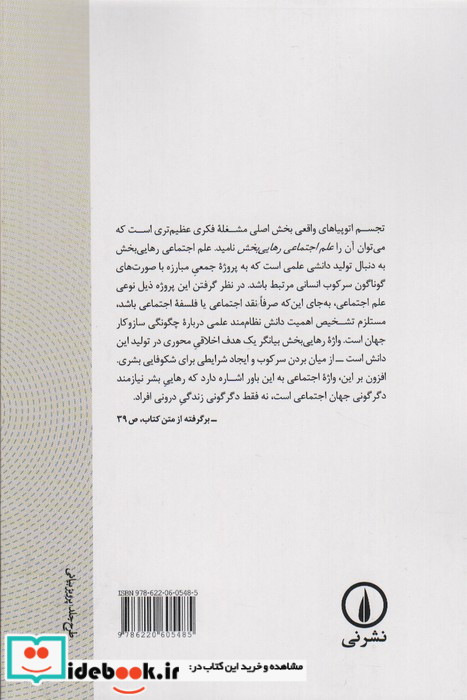 تجسم اتوپیاهای واقعی بخش اصلی مشغلهٔ فکری عظیم‌تری است که
می‌توان آن را علم اجتماعی رهایی‌بخش نامید. علم اجتماعی رهایی‌بخش
به دنبال تولید دانشی علمی است که به پروژهٔ جمعیِ مبارزه با صورت‌های
گوناگون سرکوب انسانی مرتبط باشد. در نظر گرفتن این پروژه ذیل نوعی
علم اجتماعی، به‌جای این‌که صرفاً نقد اجتماعی یا فلسفهٔ اجتماعی باشد،
مستلزم تشخیص اهمیت دانش نظام‌مند علمی دربارهٔ چگونگی سازوکار
جهان است. واژهٔ رهایی‌بخش بیانگر یک هدف اخلاقیِ محوری در تولید این
دانش است ــ از میان بردن سرکوب و ایجاد شرایطی برای شکوفایی بشری.
افزون بر این، واژهٔ اجتماعی به این باور اشاره دارد که رهاییِ بشر نیازمند
دگرگونی جهان اجتماعی است، نه فقط دگرگونی زندگیِ درونی افراد.
ــ برگرفته از متن کتاب، ص ۳۹
طرح جلد: پرویز بیانی
ISBN 978-622-06-0548-5
9 786220 605485
نشرنی
مشاهده و خرید این کتاب در:
idebook.ir